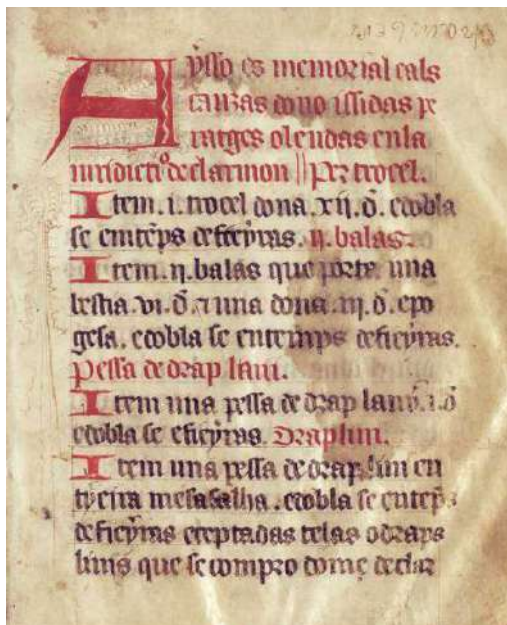 Aysso es memorial cals
causas dono issidas pe
ratges oleudas en la
iuridictiō declarmon || Per trocel.
Item .i. trocel dona .xii. d̄. edobla
se entēps defieyras. ii. balas.
Item .ii. balas que porte una
bestia .vi. d̄. ⁊ una dona .iii. d̄. epo
gesa. edobla se entemps defieyras.
Pessa de drap lani.
Item una pessa de drap lani .i. d̄
edobla se efieyras. Drap lini.
Item una pessa de drap lini en
tyeira mesasalha. edobla se entēps
defieyras exeptadas telas odraps
linis que se compro dome declar